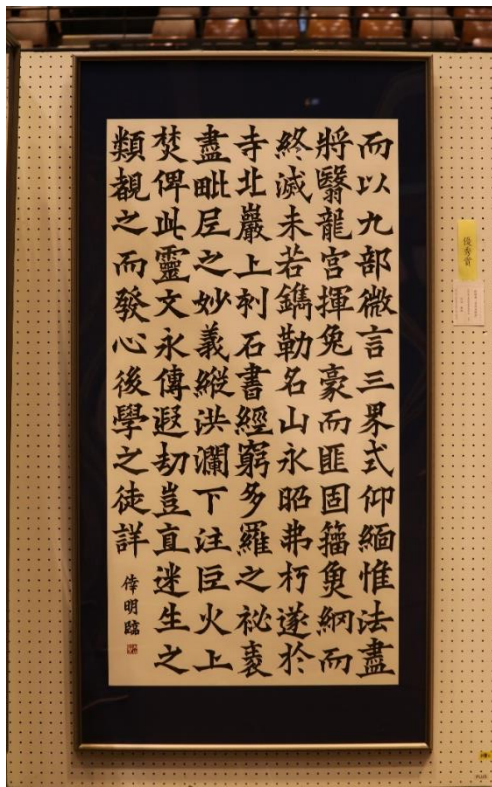 而以九部微言三界式仰緬惟法盡
將翳龍宮揮兔豪而匪固籀魚網而
終滅未若鐫勒名山永昭弗朽遂於
寺北巖上刋石書經窮多羅之祕袠
盡毗尼之妙義縱洪瀾下注巨火上
焚俾此靈文永傳遐劫豈直迷生之
類覩之而發心後學之徒詳
倖明臨
俊秀賞